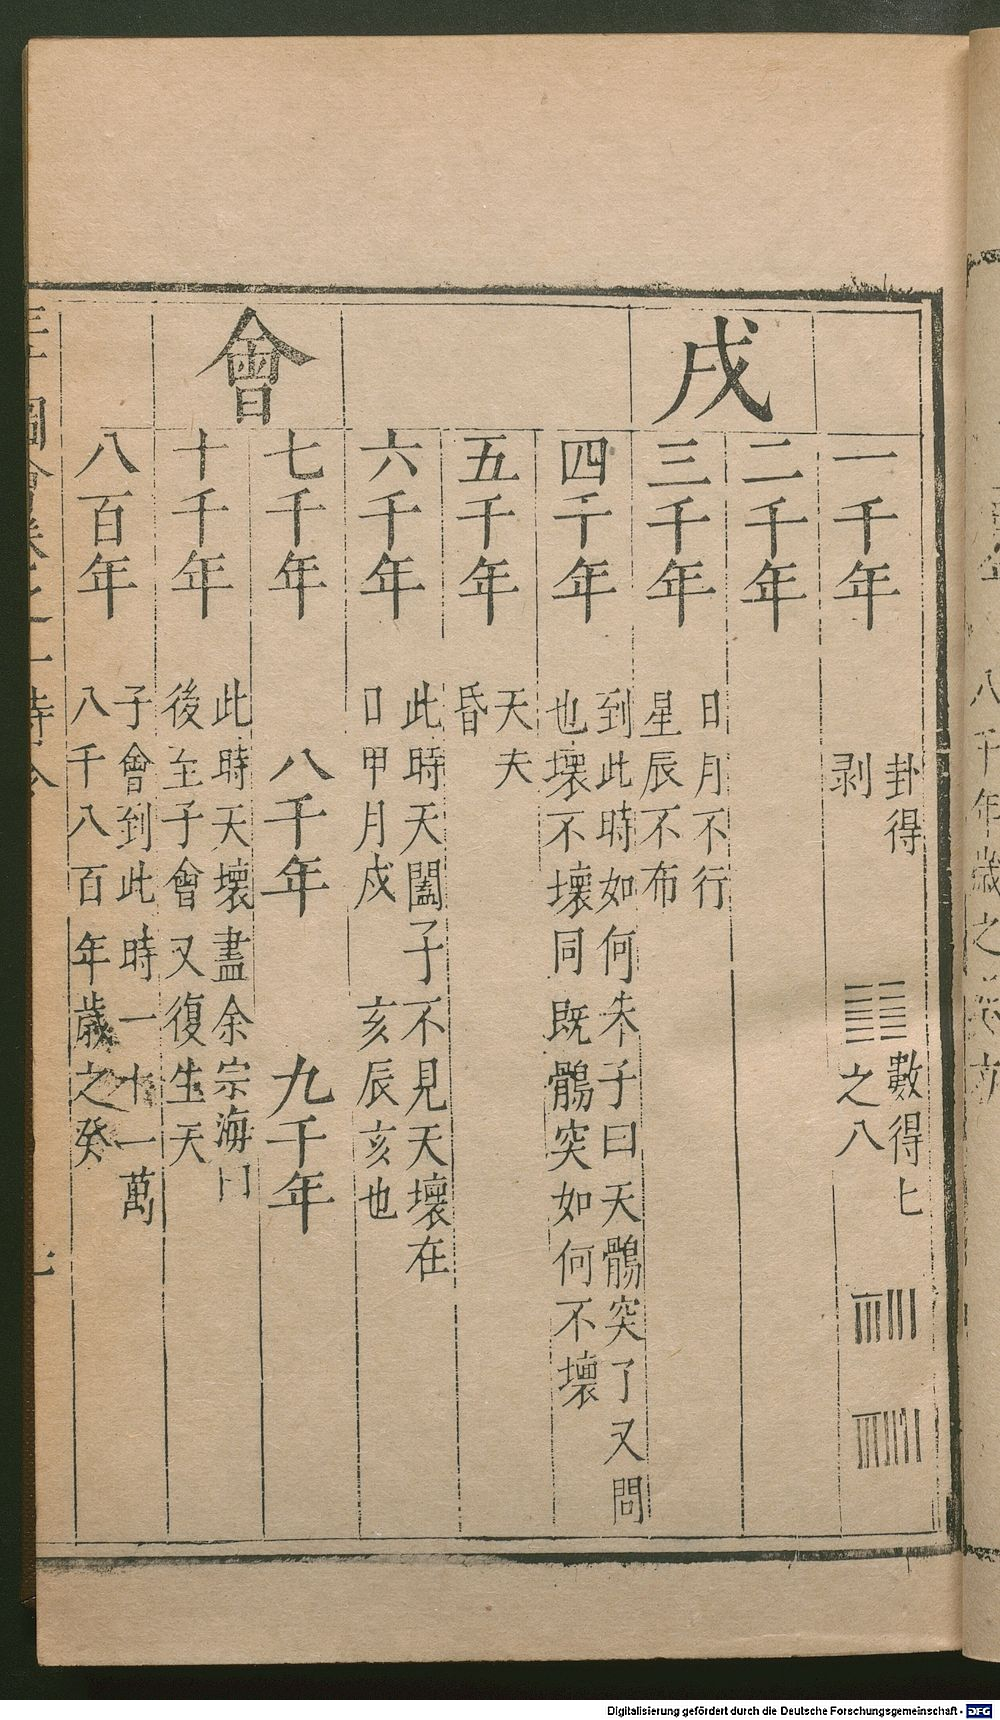 戌會
一千年
卦得
剥
數得七
之八
二千年
三千年
日月不行
星辰不布
四千年
到此時如何朱子曰天鶻突了又問
也壞不壞同既鶻突如何不壞
五千年
天夫
昏
六千年
此時天闔子不見天壞在
日甲月戍 亥辰亥也
七千年 八千年 九千年
十千年
此時天壞盡余宗海曰
後至子會又復生天
八百年
子會到此時一十一萬
八千八百年歲之癸
八千年歲之
Digitalisierung gefördert durch die Deutsche Forschungsgemeinschaft - DFG